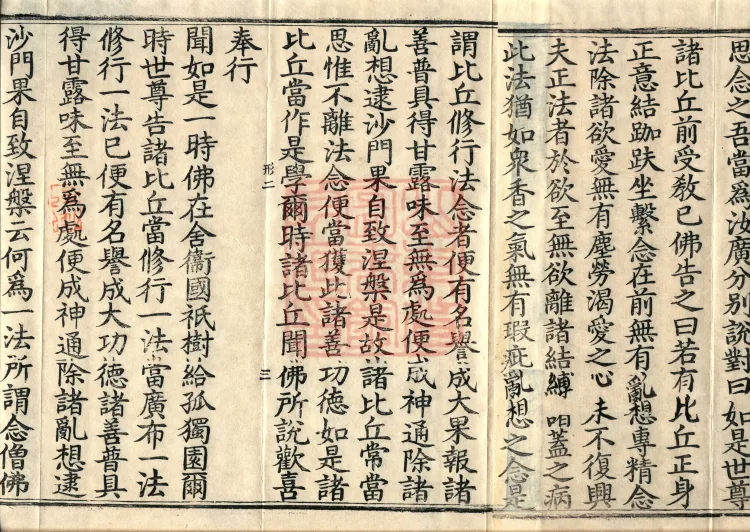 思念之吾當爲汝廣分別說對曰如是世尊
諸比丘前受教已佛告之曰若有比丘正身
正意結跏趺坐繫念在前無有亂想專精念
法除諸欲愛無有塵勞渴愛之心未不復興
夫正法者於欲至無欲離諸結縛 蓋之病
此法猶如衆香之氣無有瑕疵亂想之念是
謂比丘修行法念者便有名譽成大果報諸
善普具得甘露味至無爲處便成神通除諸
亂想逮沙門果自致涅槃是故諸比丘常當
思惟不離法念便當獲此諸善功德如是諸
比丘當作是學爾時諸比丘聞佛所說歡喜
形二 三
奉行
聞如是一時佛在舍衞國祇樹給孤獨園爾
時世尊告諸比丘當修行一法當廣布一法
修行一法已便有名譽成大功德諸善普具
得甘露味至無爲處便成神通除諸亂想逮
沙門果自致涅槃云何爲一法所謂念僧佛